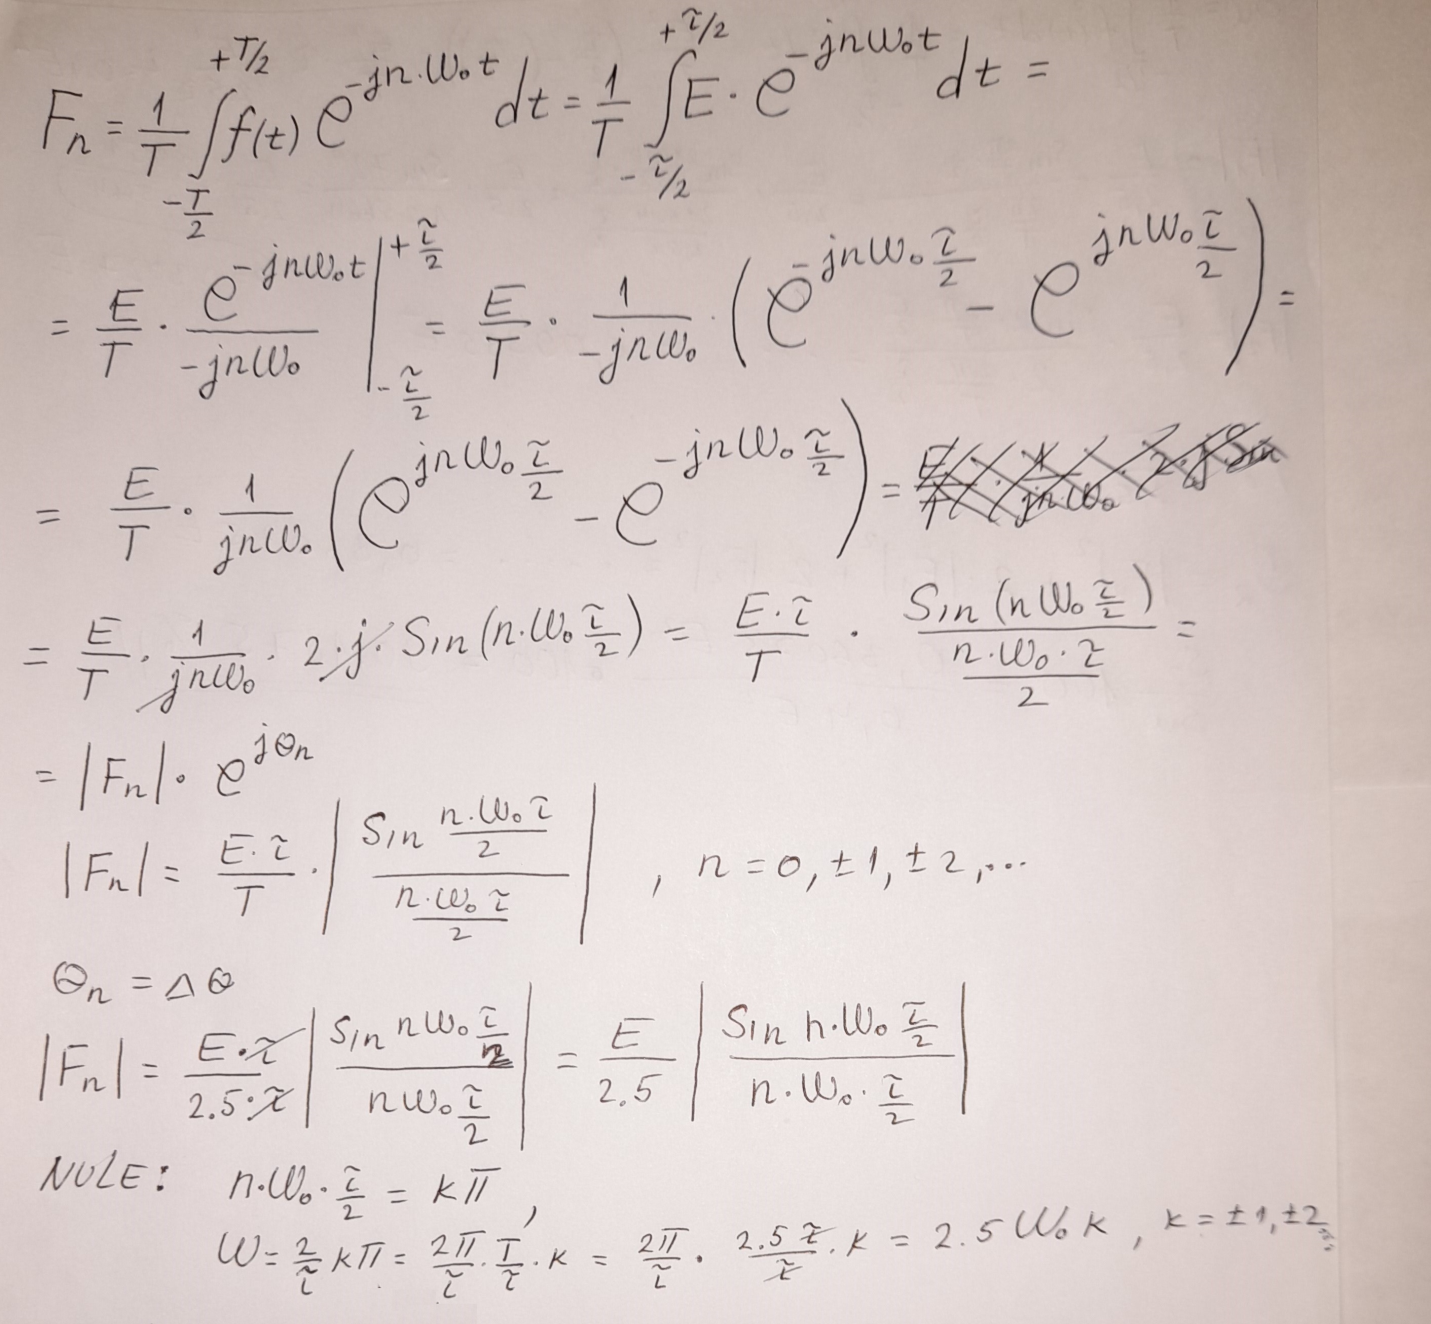 Fn = 1/T ∫_{-T/2}^{+T/2} f(t) e^{-jn·ω₀t} dt = 1/T ∫_{-τ/2}^{+τ/2} E · e^{-jnω₀t} dt =
= E/T · e^{-jnω₀t}/(-jnω₀) |_{-τ/2}^{+τ/2} = E/T · 1/(-jnω₀) · (e^{-jnω₀ τ/2} - e^{jnω₀ τ/2}) =
= E/T · 1/(jnω₀) (e^{jnω₀ τ/2} - e^{-jnω₀ τ/2}) =
= E/T · 1/(jnω₀) · 2·j· Sin(n·ω₀ τ/2) = E·τ/T · Sin(nω₀ τ/2)/(n·ω₀·τ/2) =
= |Fn| · e^{jθn}
|Fn| = E·τ/T · |Sin n·ω₀τ/2 / (n·ω₀τ/2)| , n = 0, ±1, ±2,...
θn = Δθ
|Fn| = E·τ/(2.5·τ) |Sin nω₀ τ/2 / (nω₀ τ/2)| = E/2.5 |Sin n·ω₀ τ/2 / (n·ω₀· τ/2)|
NULE: n·ω₀· τ/2 = kπ,
ω = 2/τ kπ = 2π/τ · T/τ · k = 2π/τ · 2.5τ/τ · k = 2.5 ω₀ k , k = ±1, ±2...